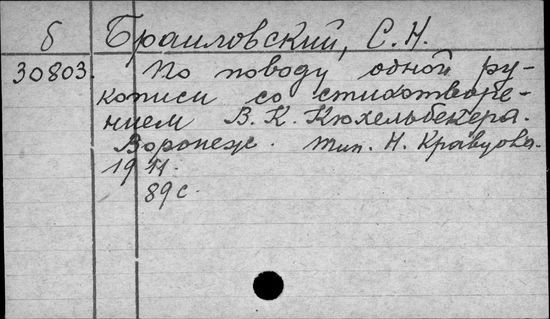 б Браиловский, С. Н.
30803. По поводу одной ру-
кописи со стихотворе-
нием В. К. Кюхельбекера.
Воронеж. Тип. Н. Кравцова.
1911.
89 с.